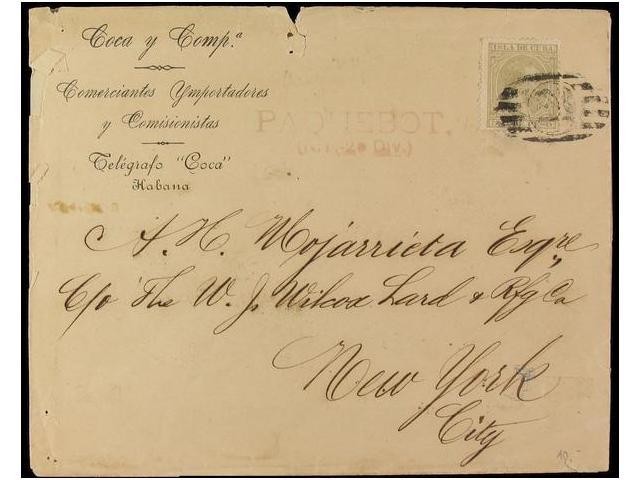 Coca y Comp.ª
Comerciantes Ymportadores
y Comisionistas
Telégrafo "Coca"
Habana
ISLA DE CUBA
PAQUEBOT.
(N.Y. 2D DIV.)
A. H. Mojarrieta Esqre
C/o The W. J. Wilcox Lard & Rfg Co
New York
City